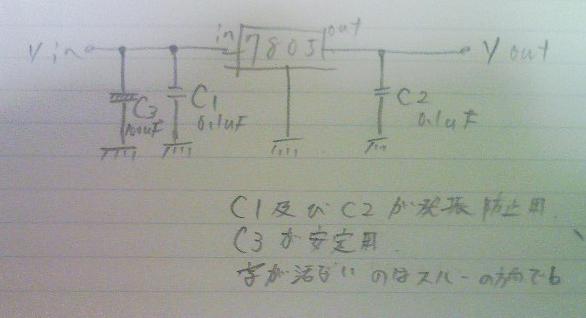 Vin in 7805 out Vout
C3 100uF
C1 0.1uF
C2 0.1uF
C1及びC2が発振防止用
C3が安定用
字が活ないのはスルーの方向でb